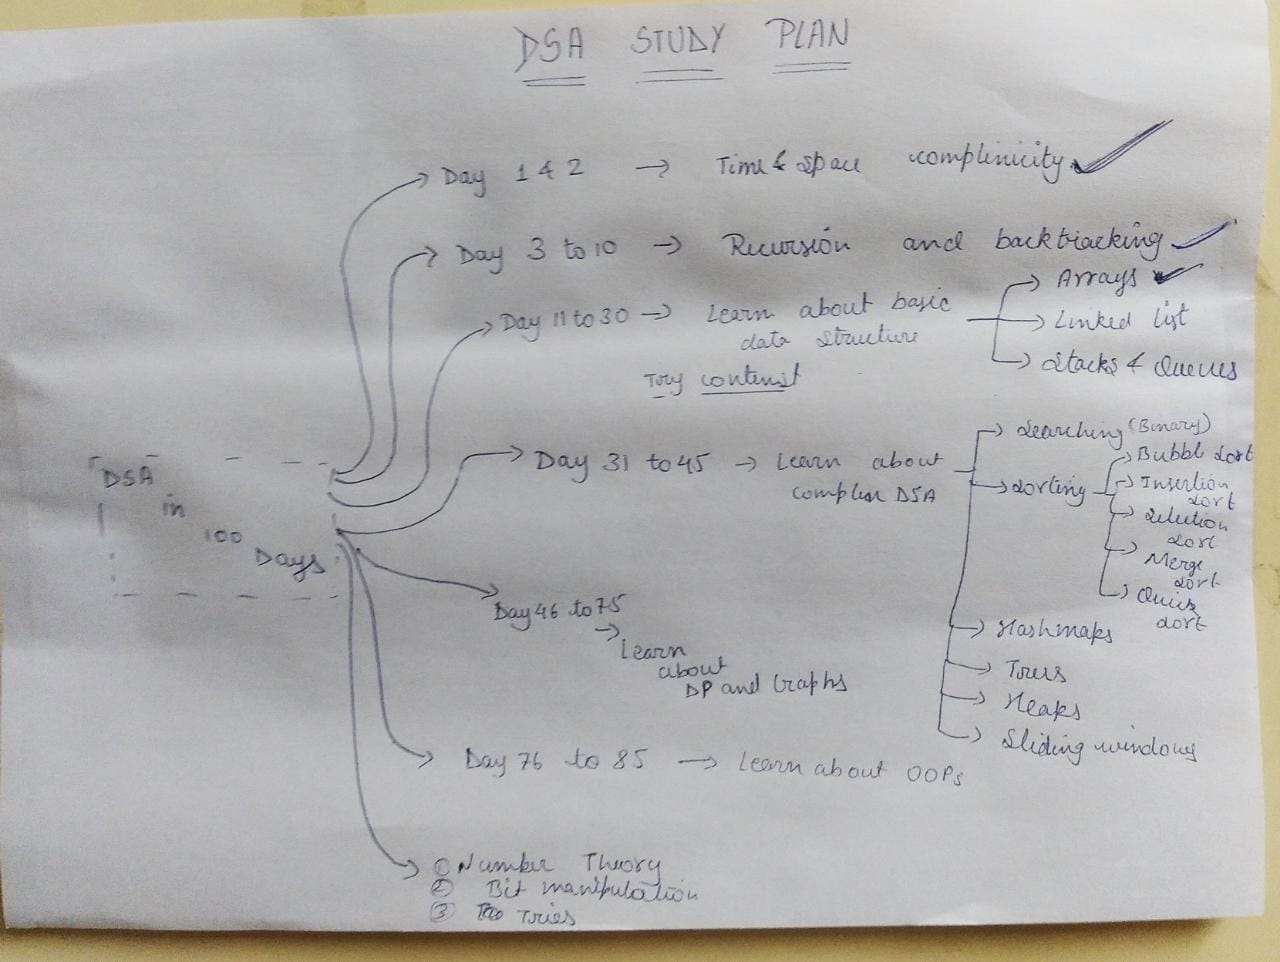 DSA STUDY PLAN
Day 1 & 2 → Time & Space complinicity ✓
Day 3 to 10 → Recursion and backtracking ✓
Day 11 to 30 → Learn about basic
data structure
Arrays ✓
Linked list
Stacks & Queues
Try contenst
Day 31 to 45 → Learn about
complex DSA
Searching (Binary)
Sorting
Bubble Sort
Insertion
Sort
Selection
Sort
Merge
Sort
Quick
Sort
Hashmaps
Trees
Heaps
Sliding windows
DSA
in
100
Days
Day 46 to 75
→ Learn
about
DP and Graphs
Day 76 to 85 → Learn about OOPs
① Number Theory
② Bit manipulation
③ Tries